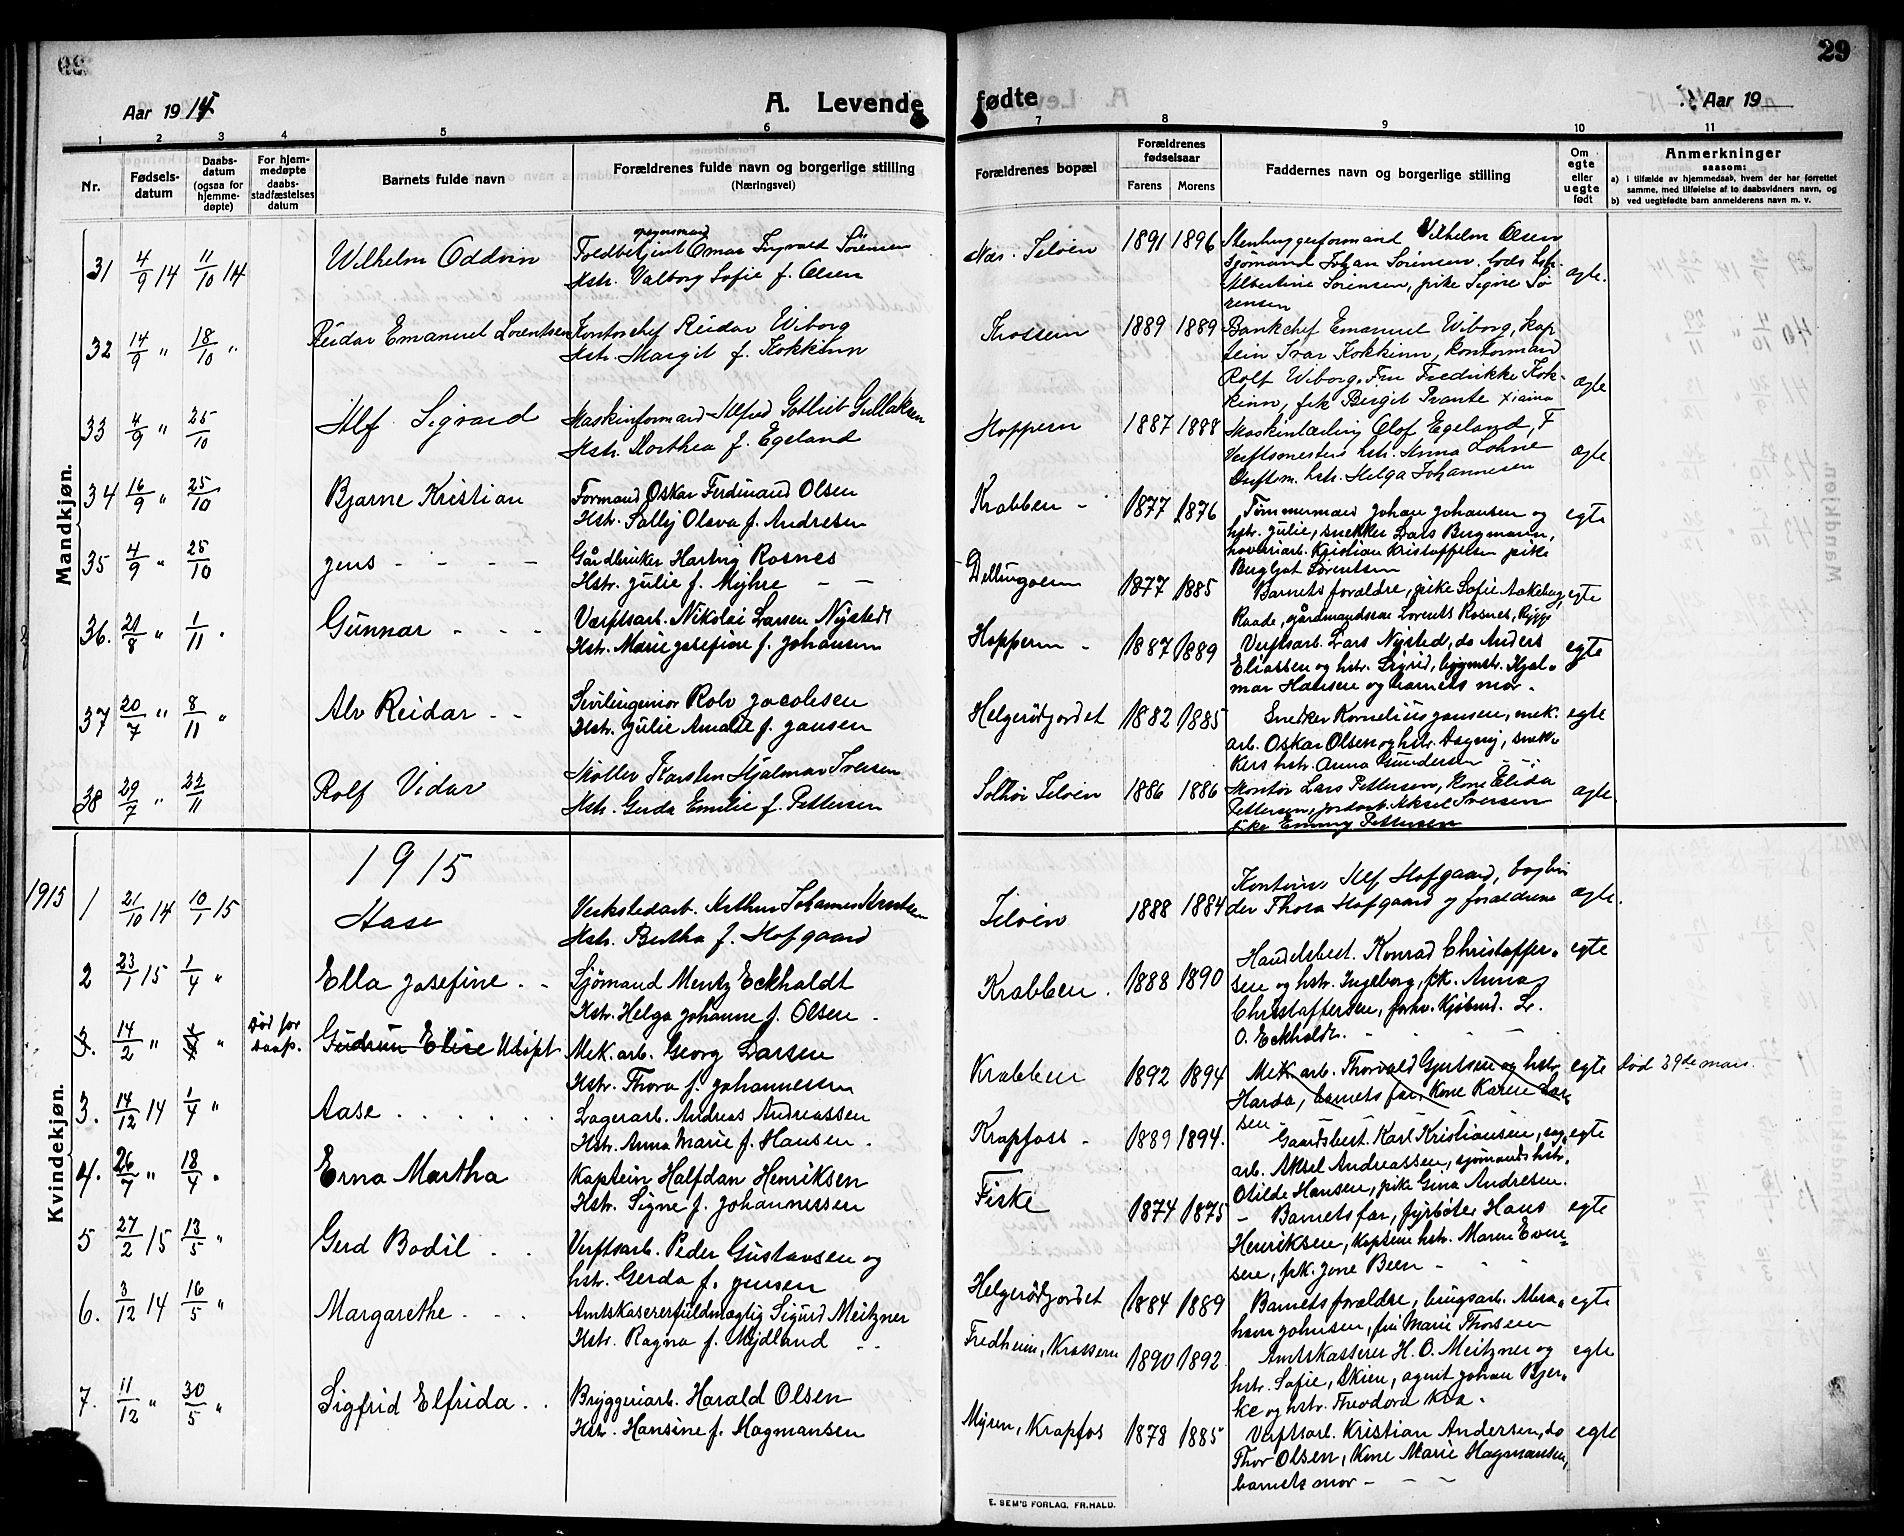 29
Aar 1914 A. Levende fødte Aar 19
1 2 3 4 5 6 7 8 9 10 11
Nr.
Fødsels-
datum
Daabs-
datum
(ogsaa for
hjemme-
døpte)
For hjem-
medøpte
daabs-
stadfæstelses
datum
Barnets fulde navn
Forældrenes fulde navn og borgerlige stilling
(Næringsvei)
Forældrenes bopæl
Forældrenes
fødselsaar
Farens Morens
Faddernes navn og borgerlige stilling
Om
egte
eller
uegte
født
Anmerkninger
saasom:
a) i tilfælde av hjemmedaab, hvem der har forrettet
samme, med tilføielse af to daabsvidners navn, og
b) ved uegtefødte barn anmelderens navn m. v.
Mandkjøn.
31 4/9 14 11/10 14 Wilhelm Oddvin
Toldbetjent Omar Ingvald Sörensen
Hstr. Valborg Sofie f. Olsen
Næs. Jeløen 1891 1896
Stenhuggerformand Vilhelm Olsen
Sjömand Johan Sörensen
Albertine Sörensen, pike Signe Sö
rensen
egte.
32 14/9 " 18/10 " Reidar Emanuel Lorentsen
Kontorchef Reidar Wiborg
Hstr. Margit f. Kokkinn
Trossern 1889 1889
Bankchef Emanuel Wiborg, Kap
tein Ivar Kokkinn, kontormand
Rolf Wiborg, Fru Fredrikke Kok-
kinn, frk Bergit Prante Xiania
egte
33 4/9 " 25/10 Alf Sigvard
Maskinformand Alfred Gotlieb Gullaksen
Hstr. Dorthea f. Egeland
Hoppern 1887 1888
Maskinlærling Olof Egeland, F
Verftsmesters hstr. Anna Lohne
Driftsm. hstr. Helga Johannesen
egte
34 16/9 " 25/10 Bjarne Kristian
Formand Oskar Ferdinand Olsen
Hstr. Sally Olava f. Andresen
Krabben - 1877 1876
Tømmermand Johan Johansen og
hstr. Julie, snekker Lars Bergmann,
hoveriarb. Kristian Kristoffersen pike
Bergljot Sörentsen
egte
35 4/9 " 25/10 Jens - - - -
Gårdbruker Hartvig Rosnes
Hstr. Julie f. Myhre - -
Dellingveien 1877 1885
Barnets forældre, pike Sofie Aakeberg,
Raade, gårdmandssøn Lorents Rosnes, Rygge
egte
36. 21/8 " 1/11 " Gunnar - - -
Verftsarb. Nikolai Larsen Nysted
Hstr. Marie Josefine f. Johansen
Hoppern - 1887 1889
Verftsarb. Lars Nysted, do Anders
Eliassen og hstr. Sigrid, bygmstr. Hjal-
mar Hansen og barnets mor -
egte
37 20/7 " 8/11 " Alv Reidar - -
Sivilingeniør Rolv Jacobsen
Hstr. Julie Amalie f. Jansen
Helgerödjordet 1882 1885
Snekker Kornelius Jansen, mek.
arb. Oskar Olsen og hstr. Dagny, snek-
kers hstr. Anna Gundersen - -
egte
38 29/7 " 22/11 Rolf Vidar
Møller Karsten Hjalmar Iversen
Hstr. Gerda Emilie f. Pettersen
Solhøi Jeløen 1886 1886
Montør Lars Pettersen, Kone Elida
Pettersen, jordarb. Aksel Iversen
pike Emmy Pettersen
egte.
1915
Kvindekjøn.
1915 1 21/10 14 10/1 15 Aase
Verkstedarb. Arthur Johannes Knutsen
Hstr. Bertha f. Hofgaard
Jeløen 1888 1884
Alf Hofgaard, bogbin
der Thora Hofgaard og forældrene
egte.
2 23/1 15 1/4 " Ella Josefine . .
Sjömand Mentz Eckholdt
Hstr. Helga Johanne f. Olsen -
Krabben . 1888 1890
Handelsbest. Konrad Christoffer-
sen og hstr. Ingeborg, frk. Anna
Christoffersen, forhv. Kjöbmd. Lr.
O. Eckholdt. - - -
egte
3. 14/2 " 4/4 " Død før
daap. Gudrun Elise Udøpt
Mek. arb. Georg Larsen
Hstr. Thora f. Johannessen
Krabben 1892 1894
Mek. arb. Thorvald Gjertsen og hstr
Harda, barnets far, Kone Karen Lar-
sen -
egte Død 29de mars.
3. 14/12 14 1/4 " Aase . . . . . .
Lagerarb. Andreas Andreassen
Hstr. Anna Marie f. Hansen .
Krapfoss - 1889 1894.
Gaardsbest. Karl Kristiansen, sag-
arb. Aksel Andreassen, sjømands hstr.
Otilde Hansen, pike Gina Andresen.
egte
4. 26/7 " 18/4 " Erna Martha
Kaptein Halfdan Henriksen
Hstr. Signe f. Johannessen
Fiske 1874 1875
- Barnets far, fyrbøter Hans
Henriksen, Kapteins hstr. Maren Even-
sen, frk. Jone Been - " "
egte
5 27/2 15 13/5 " Gerd Bodil . .
Verftsarb. Peder Gustavsen og
hstr. Gerda f. Jensen
Helgerödjordet 1884 1889
Barnets forældre, brugsarb. Abra-
ham Johnsen, frk Marie Thorsen
egte
6. 3/12 14 16/5 " Margarethe . . .
Amtskasererfuldmægtig Sigurd Meitzner
Hstr. Ragna f. Mydland . .
Fredheim, Krossern 1890 1892
Amtskasserer H. O. Meitzner og
hstr. Sofie, Skien, agent Johan Bjer-
ke og hstr. Theodora Kra -
egte
7. 11/12 " 30/5 " Sigfrid Elfrida . .
Bryggeriarb. Harald Olsen
Hstr. Hansine f. Magmansen
Myren, Krapfos 1878 1885
Verftsarb. Kristian Andersen, do
Thor Olsen, Kone Marie Hagmansen,
barnets mor - - -
egte
E. SEM'S FORLAG, FR.HALD.